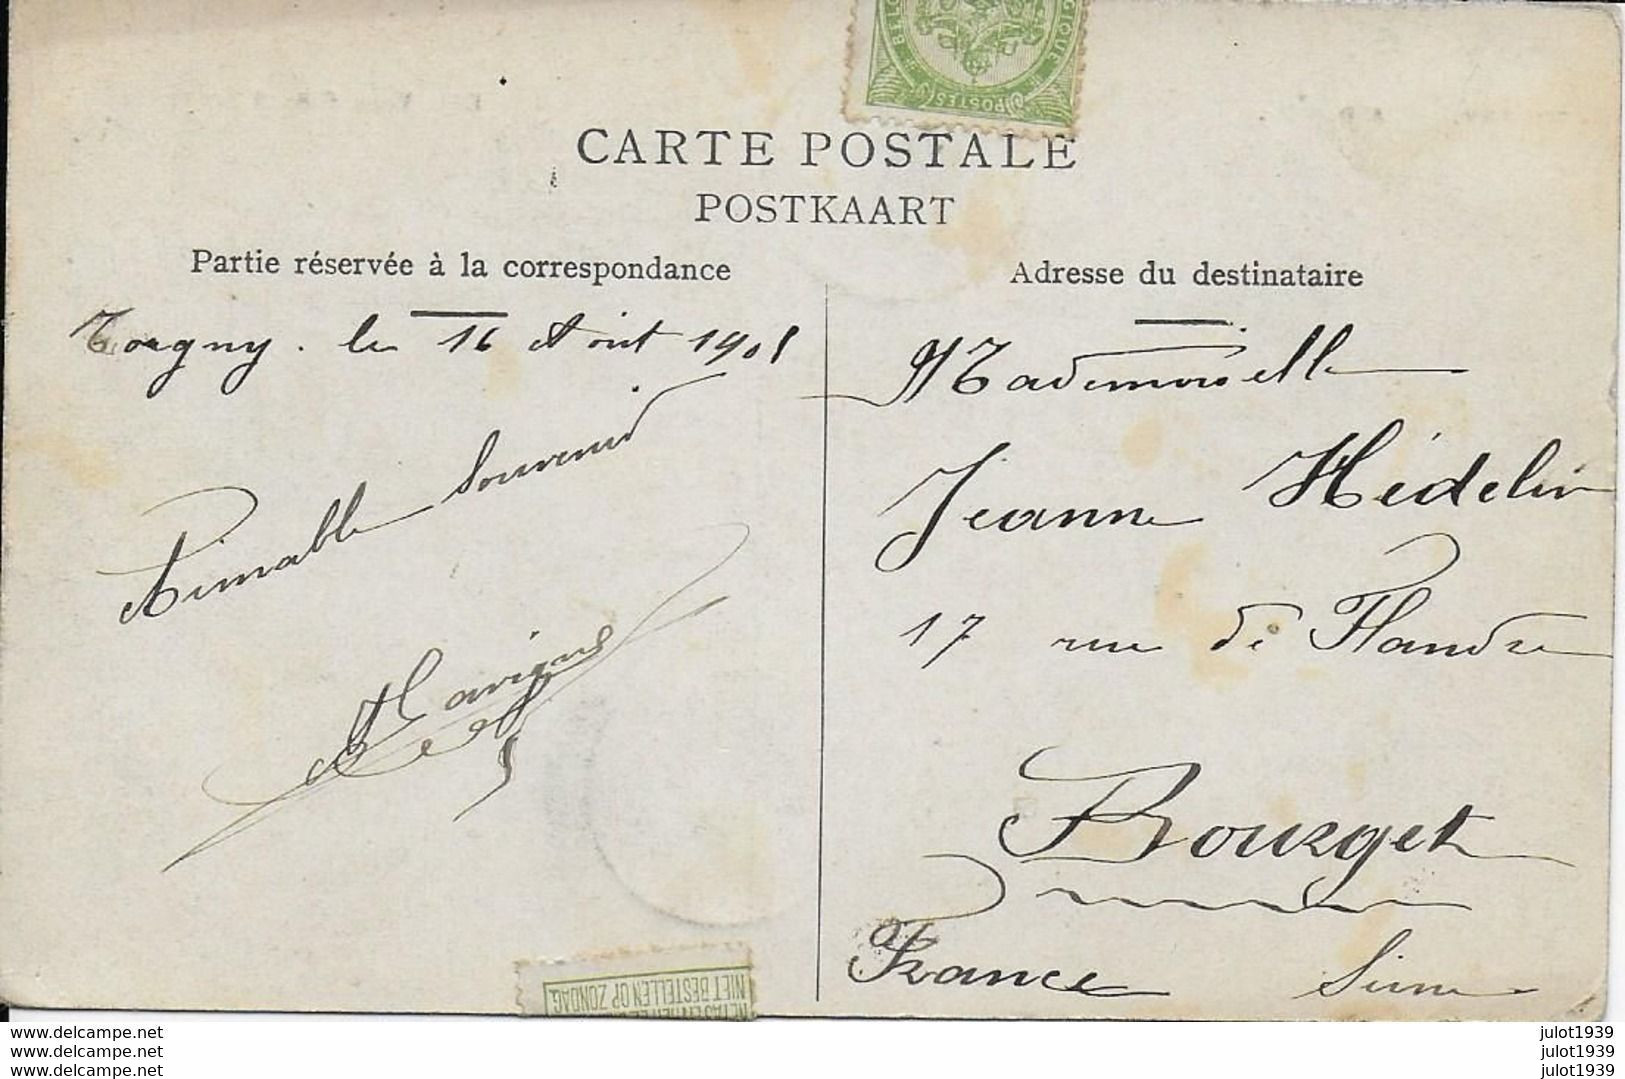 BELGIQUE
POSTES
CARTE POSTALE
POSTKAART
Partie réservée à la correspondance
Adresse du destinataire
Torgny. le 16 Août 1908
Aimable Souvenir
Mademoiselle
Jeanne Hédelin
17 rue de Flandre
Bourget
France Seine
NIET BESTELLEN OP ZONDAG
www.delcampe.net
www.delcampe.net
www.delcampe.net
julot1939
julot1939
julot1939